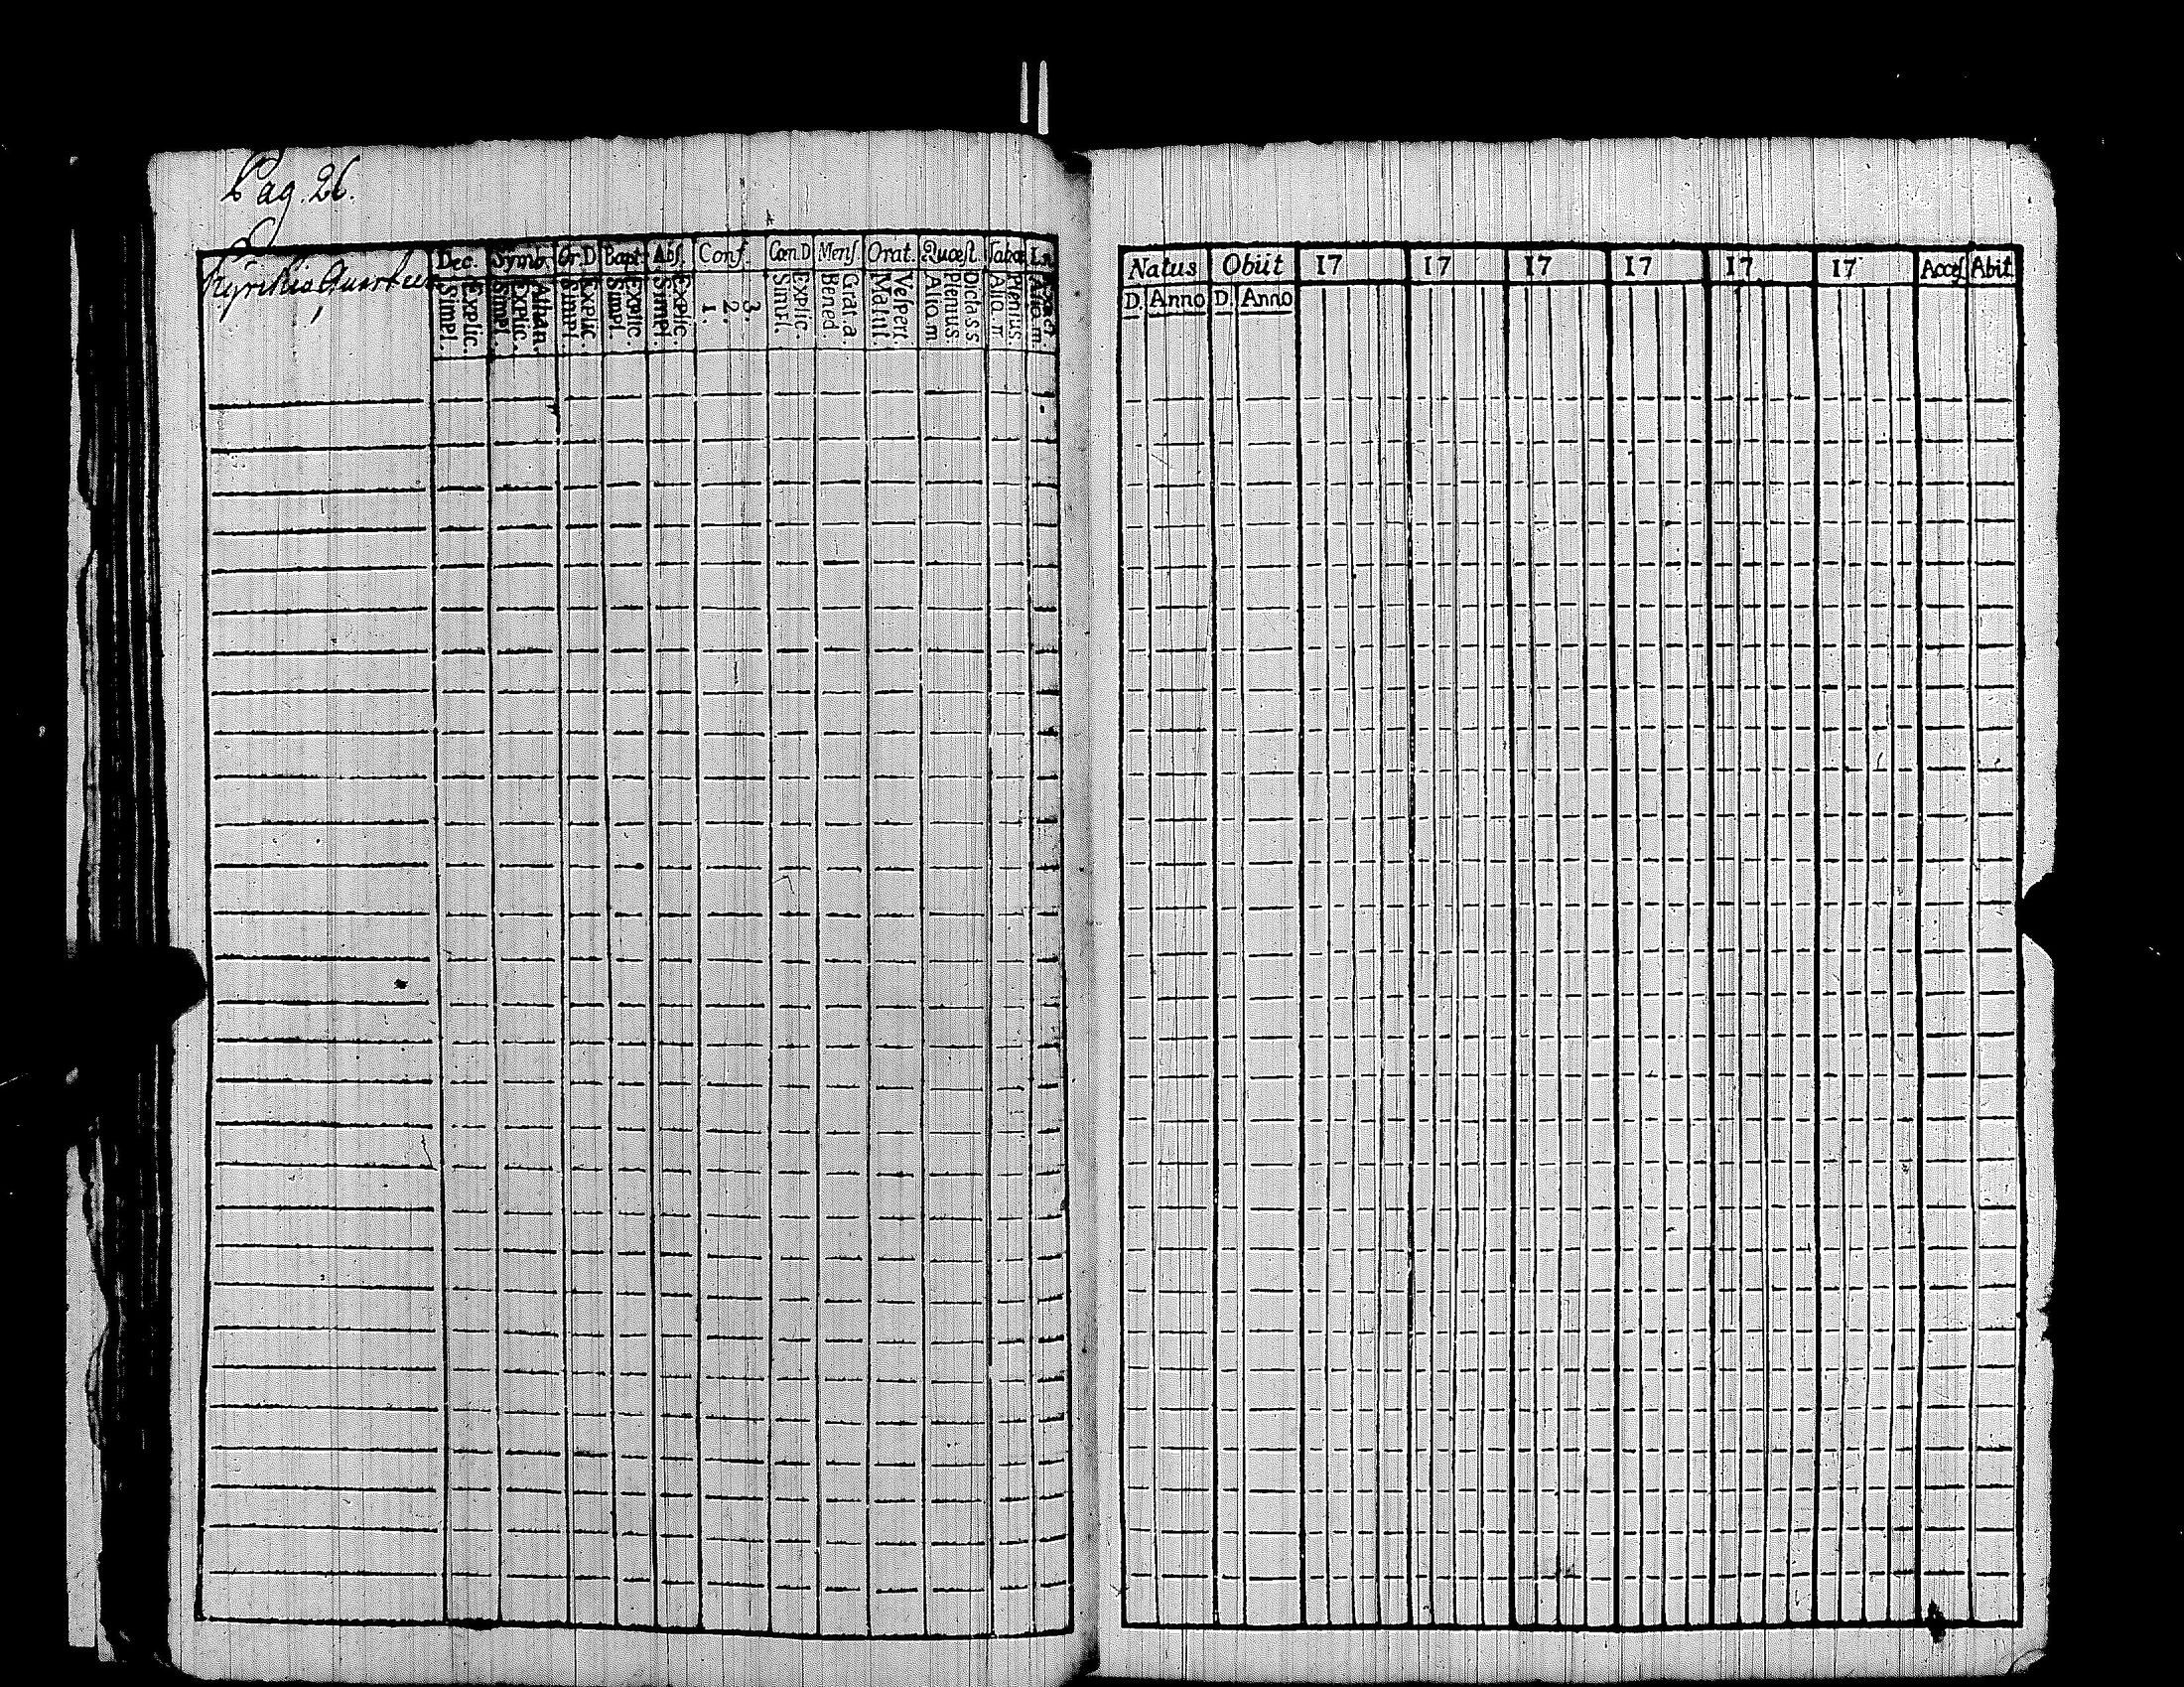 Pag. 26.
Kyrckio Quarteer
Dec. Symb. Or.D Bapt Abs. Conf. Cœn.D Mens. Orat. Quæst. Taba
Explic. Simpl. Athan. Explic. Simpl. Explic. Simpl. Explic. Simpl. Explic. Simpl. 3. 2. 1. Explic. Simpl. Grat.a. Bened. Vespert. Matut. Dicta s.s Plenius. Aliq.m Plenius. Aliq.m
Natus Obiit 17 17 17 17 17 17 Acces Abit
D. Anno D. Anno